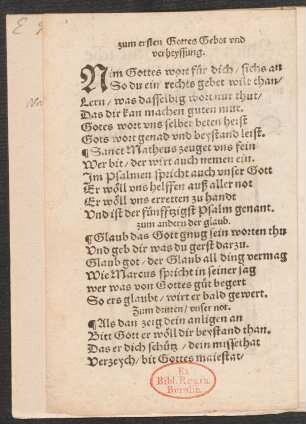 zum ersten Gottes Gebot vnd
verheyssung.
Nim Gottes wort für dich / sichs an
So du ein rechts gebet wilt than /
Lern / was dasselbig wort nur thut /
Das dir kan machen guten mut.
Gotes wort vns selber beten heist
Gots wort genad vnd beystand leist.
¶ Sanct Matheus zeuget vns fein
Wer bit / der wirt auch nemen ein.
Im Psalmen spricht auch vnser Gott
Er wöll vns helffen auß aller not
Er wöll vns erretten zu handt
Vnd ist der fünffzigst Psalm genant.
zum andern der glaub.
¶ Glaub das Gott gnug sein worten thu
Vnd geb dir was du gerst darzu.
Glaub got / der Glaub all ding vermag
Wie Marcus spricht in seiner sag
wer was von Gottes güt begert
So ers glaubt / wirt er bald gewert.
Zum dritten / vnser not.
¶ Als dan zeig dein anligen an
Bitt Gott er wöll dir beystand than.
Das er dich schütz / dein missethat
Verzeych / bit Gottes maiestat /
Ex
Bibl. Regia
Berolin.